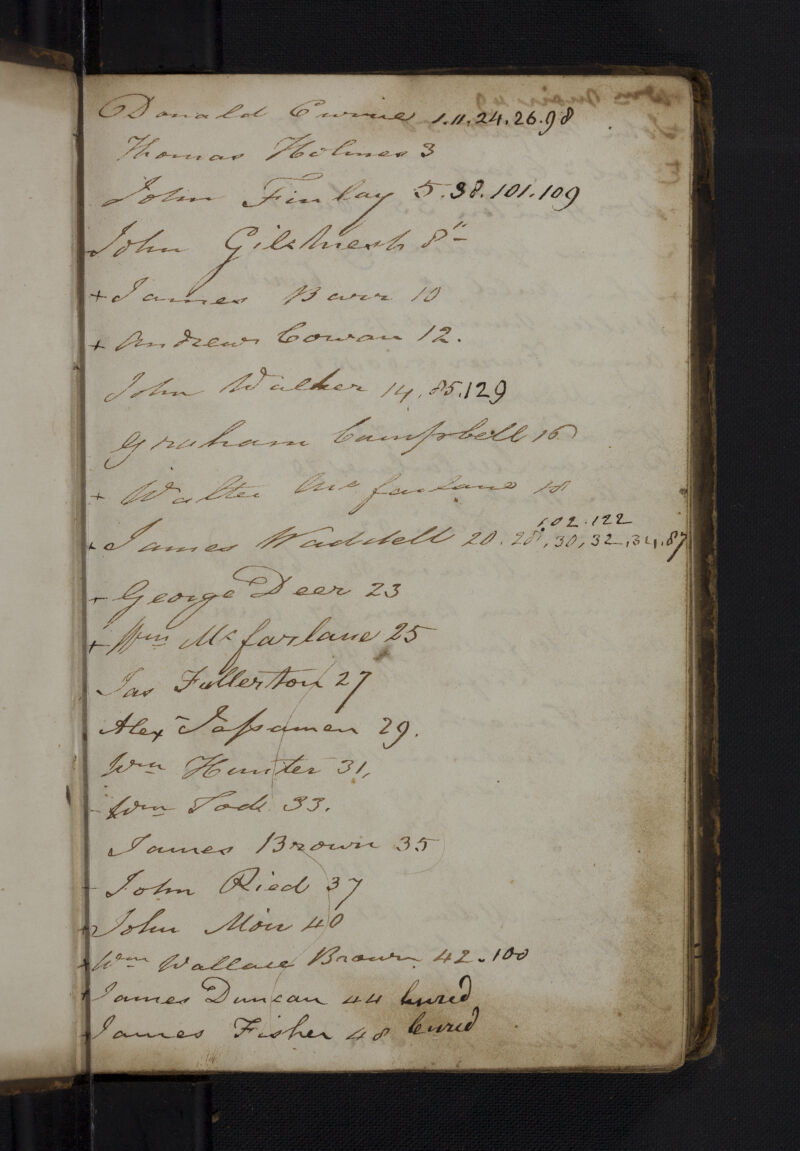 Donald Currie 1.11.24.26.98
Thomas Holmes 3
John Finlay 5.38.101.109
John 8"
+ James Barr 10
+ Andrew Cowan 12.
John Walker 14.85.129
Graham Campbell 16
+ Walter Mc farlane 18
102.122
+ James Waddell 20.28.30,32.34.87
+ George Deer 23
+ Wm McFarlane 25
Jas Fullerton 27
Alex 29.
Wm Hunter 31,
Wm Tode 33.
James Brown 35
John Ried 37
+ John Moir 40
+ Wm Wallace Brown 42.100
+ James Duncan 44 cured
+ James Fisher 48 cured